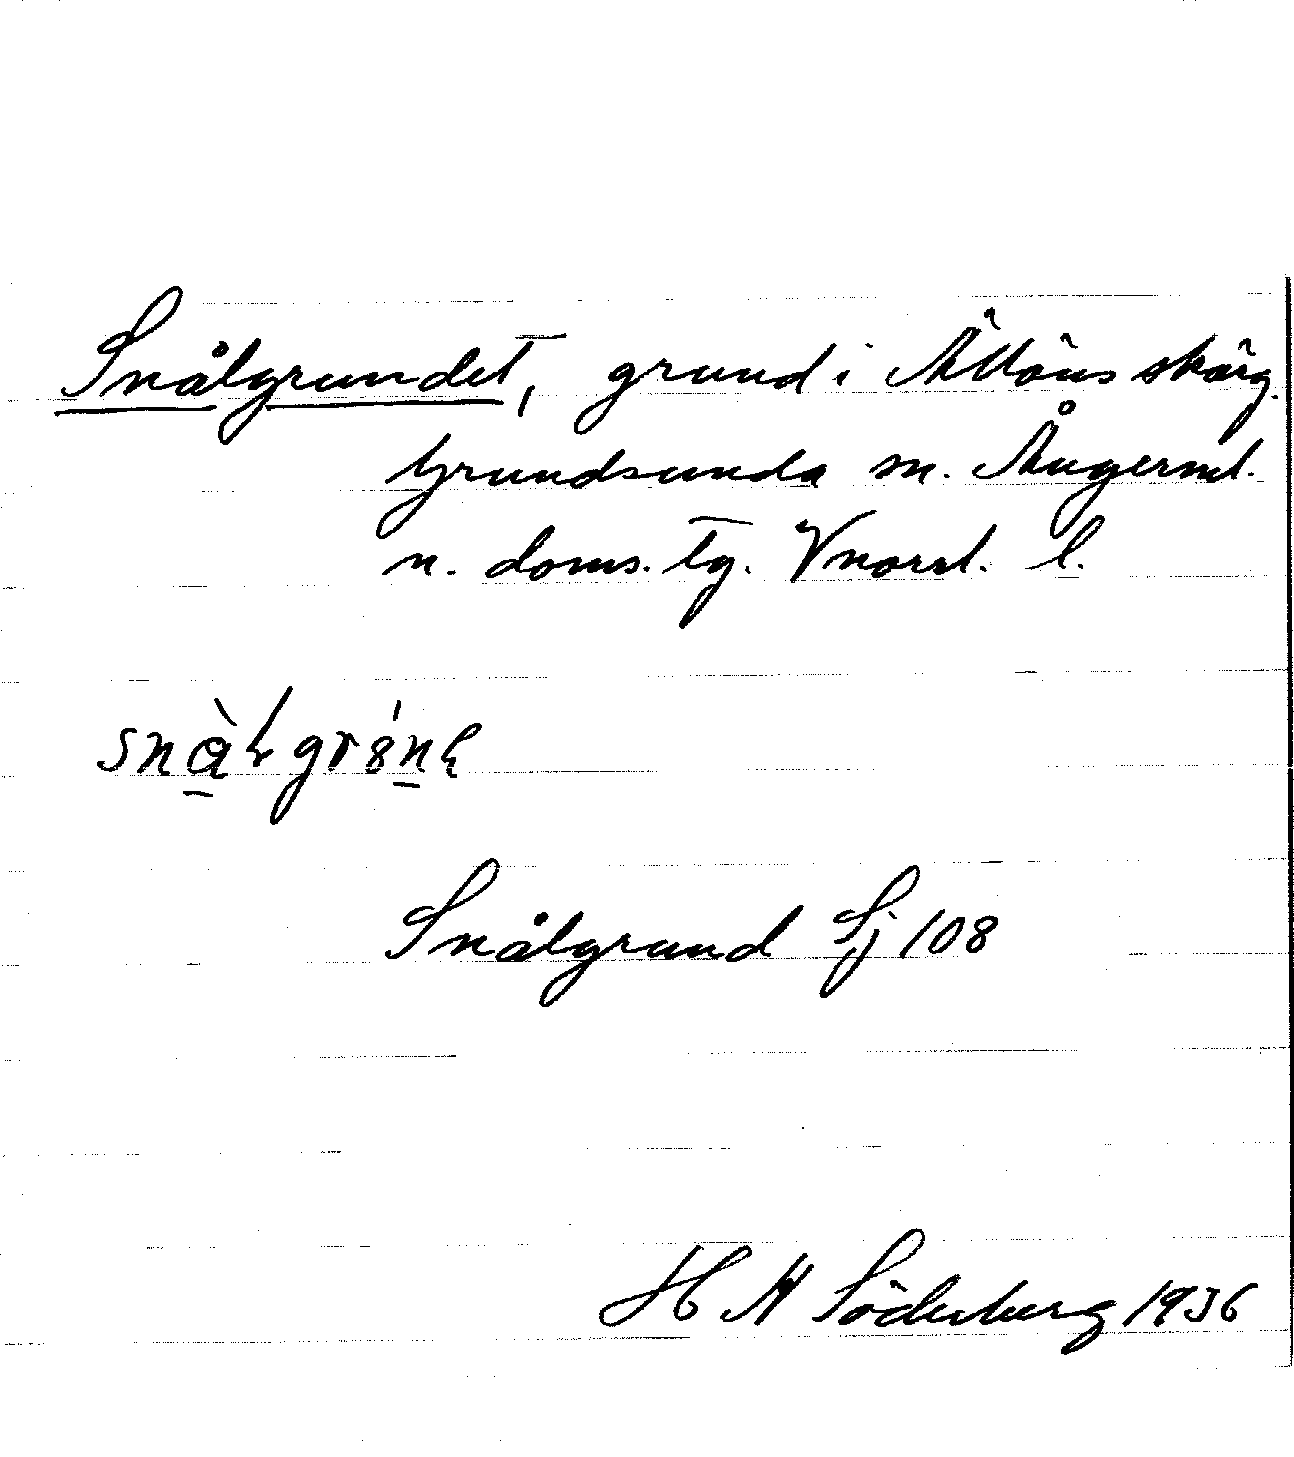 Snålgrundet, grund i Ällöns skärg.
Grundsunda sn. Ångerml.
n. doms. tg. Vnorrl. l.
Snålgrund Sj 108
H N Söderberg 1936